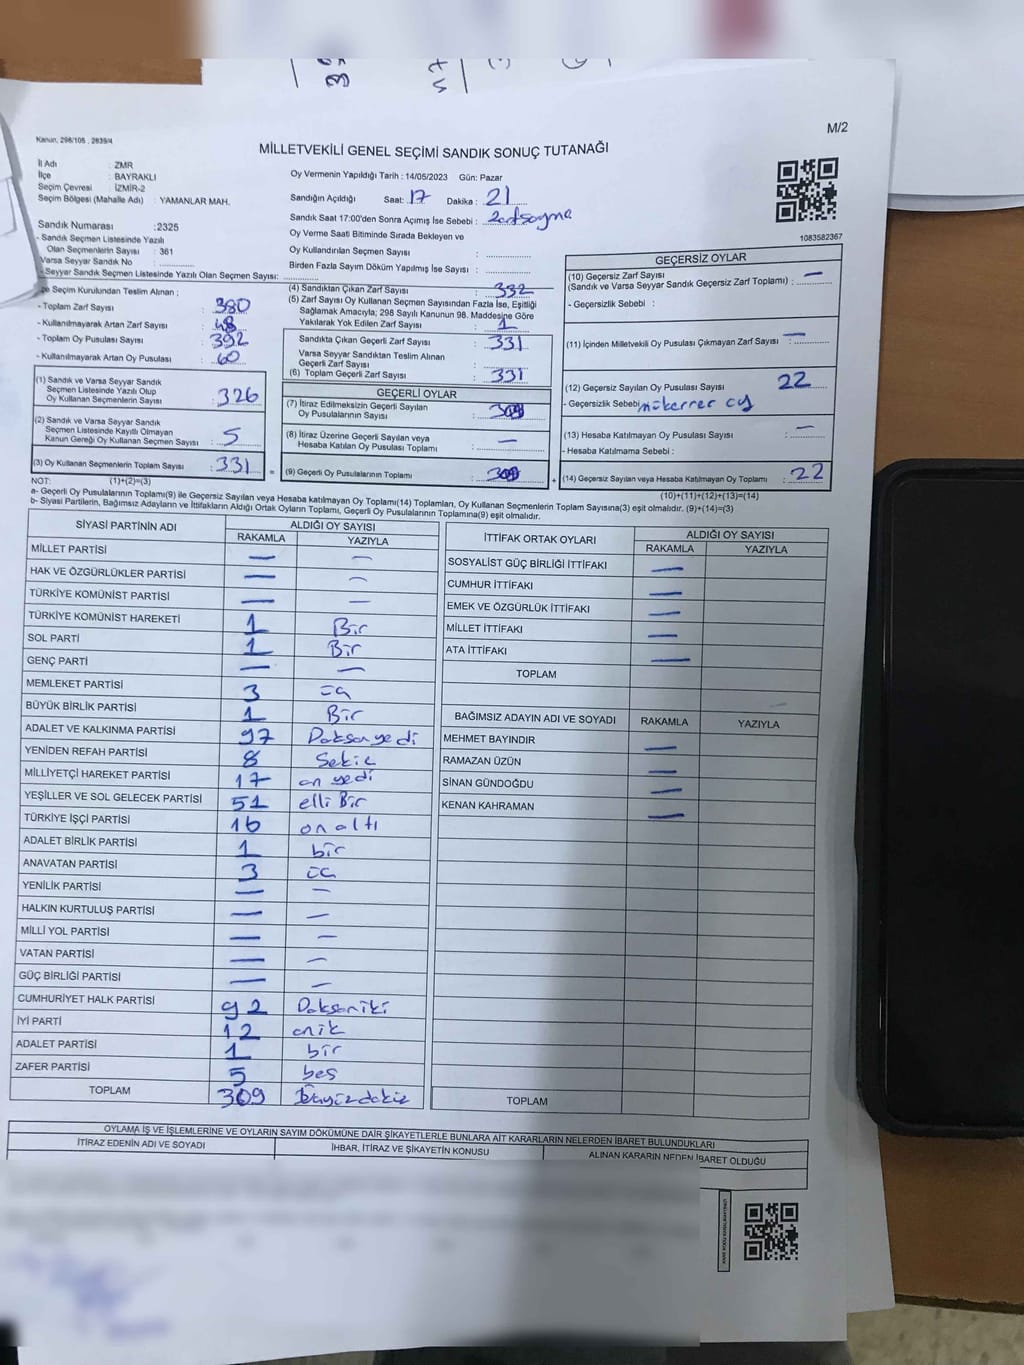 M/2
Kanun, 298/105 , 2839/4
MİLLETVEKİLİ GENEL SEÇİMİ SANDIK SONUÇ TUTANAĞI
İl Adı : ZMR
İlçe : BAYRAKLI
Seçim Çevresi : İZMİR-2
Seçim Bölgesi (Mahalle Adı) : YAMANLAR MAH.
Sandık Numarası :2325
- Sandık Seçmen Listesinde Yazılı
Olan Seçmenlerin Sayısı : 361
Varsa Seyyar Sandık No :
- Seyyar Sandık Seçmen Listesinde Yazılı Olan Seçmen Sayısı:
Oy Vermenin Yapıldığı Tarih : 14/05/2023 Gün: Pazar
Sandığın Açıldığı Saat: 17 Dakika : 21
Sandık Saat 17:00'den Sonra Açımış İse Sebebi :
Oy Verme Saati Bitiminde Sırada Bekleyen ve
Oy Kullandırılan Seçmen Sayısı :
Birden Fazla Sayım Döküm Yapılmış İse Sayısı :
1083582367
Seçim Kurulundan Teslim Alınan ;
- Toplam Zarf Sayısı : 380
- Kullanılmayarak Artan Zarf Sayısı : 48
- Toplam Oy Pusulası Sayısı : 392
- Kullanılmayarak Artan Oy Pusulası : 60
(1) Sandık ve Varsa Seyyar Sandık
Seçmen Listesinde Yazılı Olup
Oy Kullanan Seçmenlerin Sayısı : 326
(2) Sandık ve Varsa Seyyar Sandık
Seçmen Listesinde Kayıtlı Olmayan
Kanun Gereği Oy Kullanan Seçmen Sayısı : 5
(3) Oy Kullanan Seçmenlerin Toplam Sayısı : 331
(1)+(2)=(3)
(4) Sandıktan Çıkan Zarf Sayısı : 332
(5) Zarf Sayısı Oy Kullanan Seçmen Sayısından Fazla İse, Eşitliği
Sağlamak Amacıyla; 298 Sayılı Kanunun 98. Maddesine Göre
Yakılarak Yok Edilen Zarf Sayısı : 1
Sandıkta Çıkan Geçerli Zarf Sayısı : 331
Varsa Seyyar Sandıktan Teslim Alınan
Geçerli Zarf Sayısı :
(6) Toplam Geçerli Zarf Sayısı : 331
GEÇERLİ OYLAR
(7) İtiraz Edilmeksizin Geçerli Sayılan
Oy Pusulalarının Sayısı :
(8) İtiraz Üzerine Geçerli Sayılan veya
Hesaba Katılan Oy Pusulası Toplamı : —
(9) Geçerli Oy Pusulalarının Toplamı :
GEÇERSİZ OYLAR
(10) Geçersiz Zarf Sayısı —
(Sandık ve Varsa Seyyar Sandık Geçersiz Zarf Toplamı) :
- Geçersizlik Sebebi :
(11) İçinden Milletvekili Oy Pusulası Çıkmayan Zarf Sayısı : —
(12) Geçersiz Sayılan Oy Pusulası Sayısı 22
- Geçersizlik Sebebi mükerrer oy
(13) Hesaba Katılmayan Oy Pusulası Sayısı : —
- Hesaba Katılmama Sebebi :
(14) Geçersiz Sayılan veya Hesaba Katılmayan Oy Toplamı : 22
(10)+(11)+(12)+(13)=(14)
NOT:
a- Geçerli Oy Pusulaları Toplamı(9) ile Geçersiz Sayılan veya Hesaba katılmayan Oy Toplamı(14) Toplamları, Oy Kullanan Seçmenlerin Toplam Sayısına(3) eşit olmalıdır. (9)+(14)=(3)
b- Siyasi Partilerin, Bağımsız Adayların ve İttifakların Aldığı Ortak Oyların Toplamı, Geçerli Oy Pusulalarının Toplamına(9) eşit olmalıdır.
SİYASİ PARTİNİN ADI ALDIĞI OY SAYISI
RAKAMLA YAZIYLA
MİLLET PARTİSİ — —
HAK VE ÖZGÜRLÜKLER PARTİSİ — —
TÜRKİYE KOMÜNİST PARTİSİ — —
TÜRKİYE KOMÜNİST HAREKETİ 1 Bir
SOL PARTİ 1 Bir
GENÇ PARTİ — —
MEMLEKET PARTİSİ 3 üç
BÜYÜK BİRLİK PARTİSİ 1 Bir
ADALET VE KALKINMA PARTİSİ 97 Doksan yedi
YENİDEN REFAH PARTİSİ 8 Sekiz
MİLLİYETÇİ HAREKET PARTİSİ 17 on yedi
YEŞİLLER VE SOL GELECEK PARTİSİ 51 elli Bir
TÜRKİYE İŞÇİ PARTİSİ 16 on altı
ADALET BİRLİK PARTİSİ 1 bir
ANAVATAN PARTİSİ 3 üç
YENİLİK PARTİSİ — —
HALKIN KURTULUŞ PARTİSİ — —
MİLLİ YOL PARTİSİ — —
VATAN PARTİSİ — —
GÜÇ BİRLİĞİ PARTİSİ — —
CUMHURİYET HALK PARTİSİ 92 Doksaniki
İYİ PARTİ 12 oniki
ADALET PARTİSİ 1 bir
ZAFER PARTİSİ 5 beş
TOPLAM 309
İTTİFAK ORTAK OYLARI ALDIĞI OY SAYISI
RAKAMLA YAZIYLA
SOSYALİST GÜÇ BİRLİĞİ İTTİFAKI —
CUMHUR İTTİFAKI —
EMEK VE ÖZGÜRLÜK İTTİFAKI —
MİLLET İTTİFAKI —
ATA İTTİFAKI —
TOPLAM
BAĞIMSIZ ADAYIN ADI VE SOYADI RAKAMLA YAZIYLA
MEHMET BAYINDIR —
RAMAZAN ÜZÜN —
SİNAN GÜNDOĞDU —
KENAN KAHRAMAN —
TOPLAM
OYLAMA İŞ VE İŞLEMLERİNE VE OYLARIN SAYIM DÖKÜMÜNE DAİR ŞİKAYETLERLE BUNLARA AİT KARARLARIN NELERDEN İBARET BULUNDUKLARI
İTİRAZ EDENİN ADI VE SOYADI İHBAR, İTİRAZ VE ŞİKAYETİN KONUSU ALINAN KARARIN NEDEN İBARET OLDUĞU